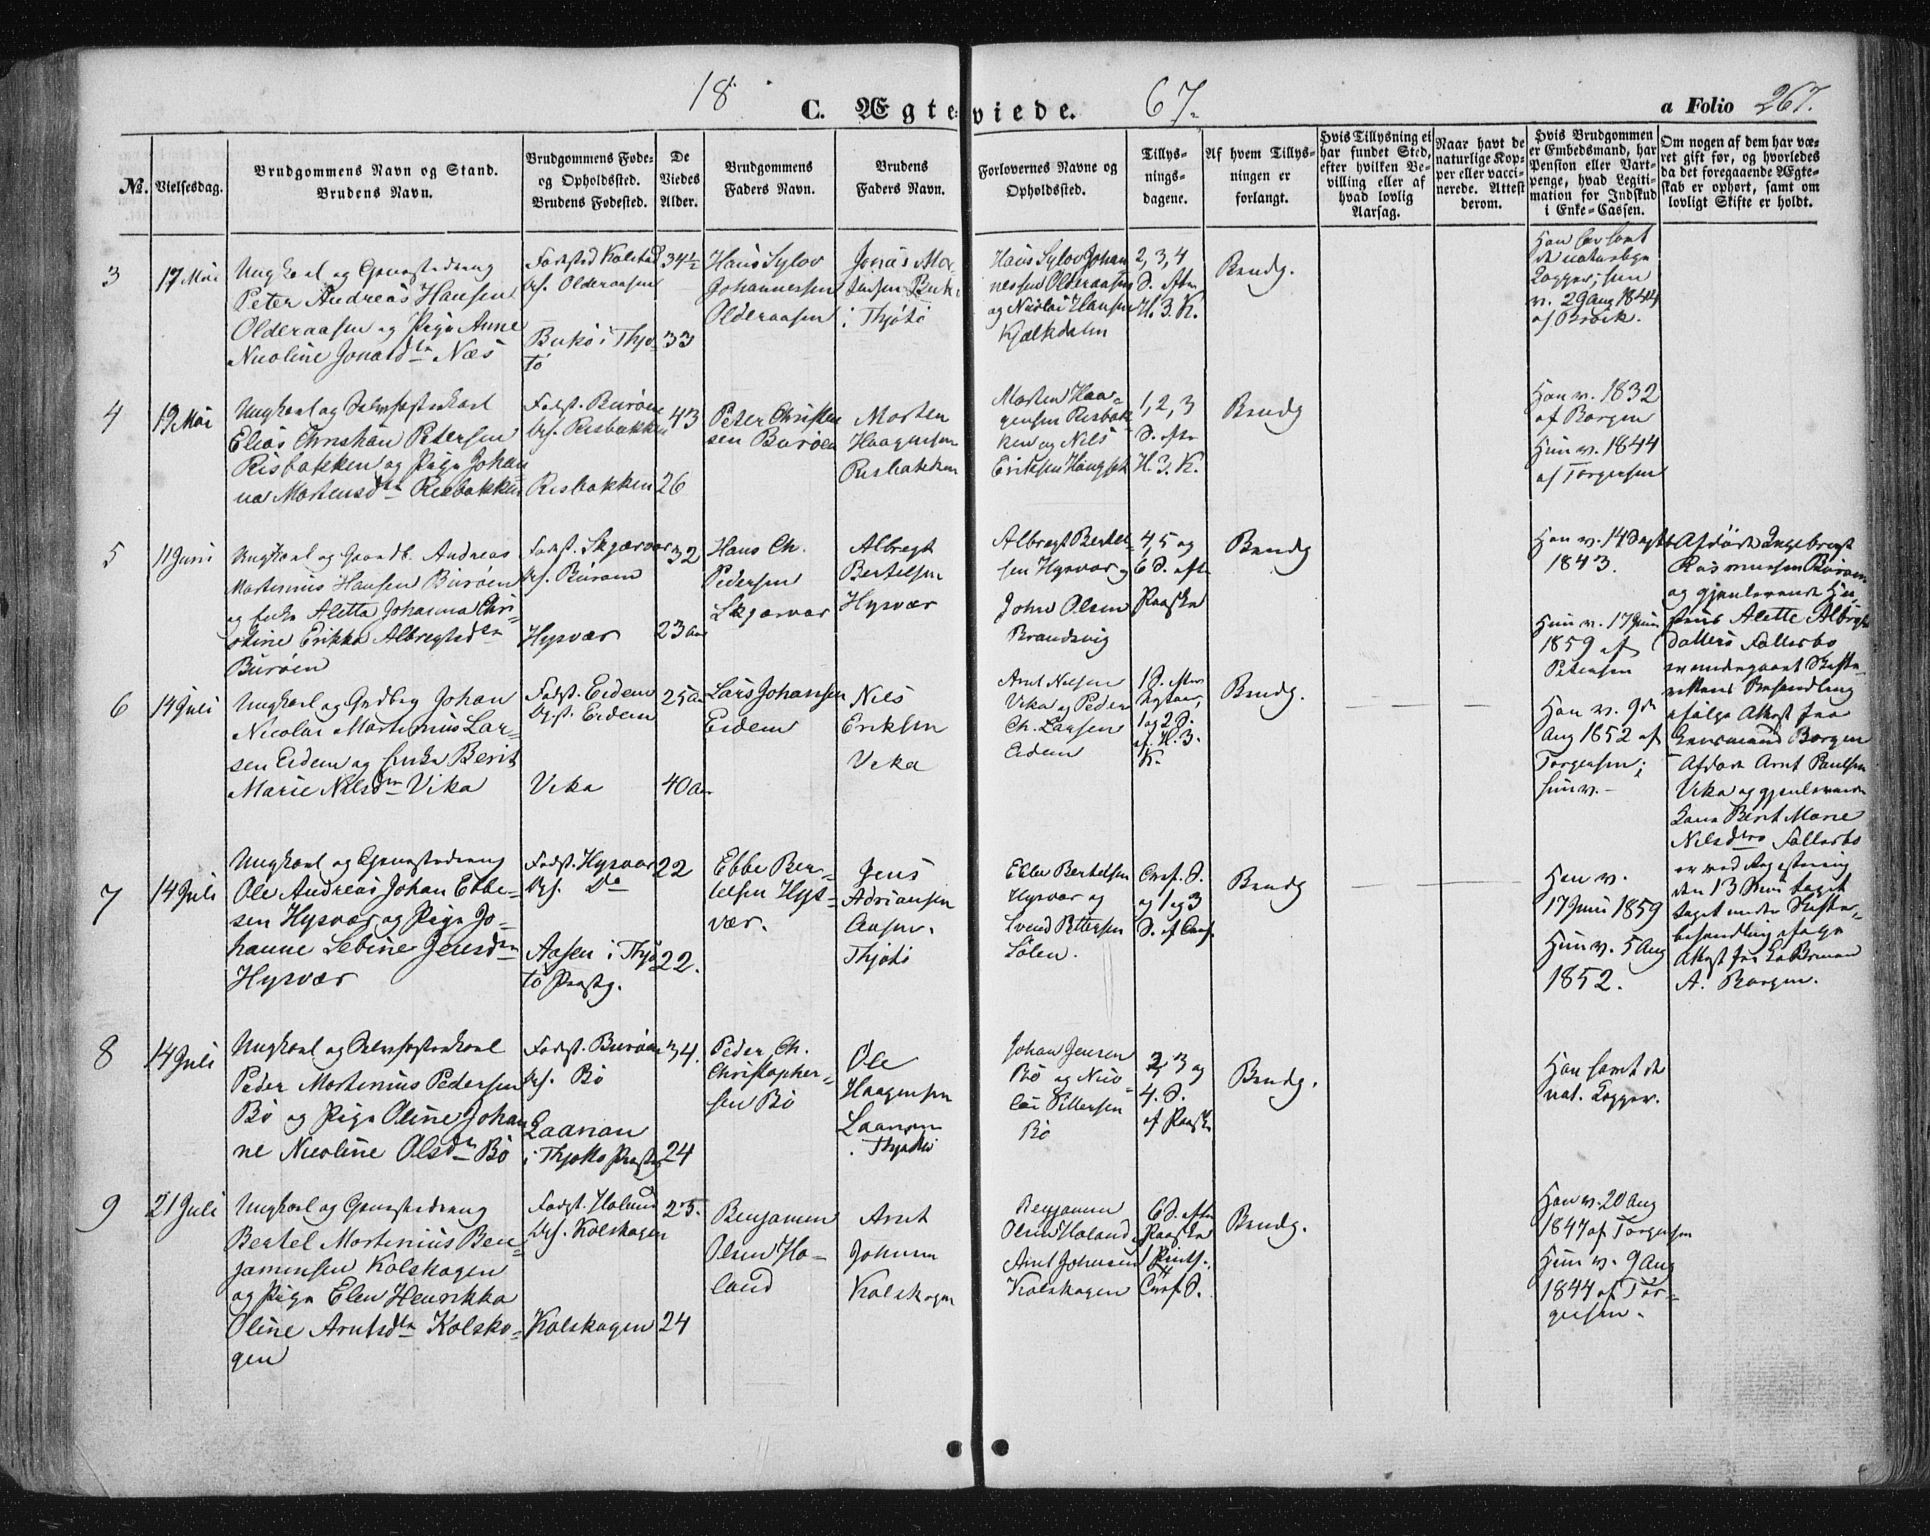 18
C. Ægteviede.
67.
a Folio 267.
No.
Vielsesdag.
Brudgommens Navn og Stand.
Brudens Navn.
Brudgommens Føde-
og Opholdssted.
Brudens Fødested.
De
Viedes
Alder.
Brudgommens
Faders Navn.
Brudens
Faders Navn.
Forlovernes Navne og
Opholdssted.
Tillys-
nings-
dagene.
Af hvem Tillys-
ningen er
forlangt.
Hvis Tillysning ei
har fundet Sted,
efter hvilken Be-
villing eller af
hvad lovlig
Aarsag.
Naar havt de
naturlige Kop-
per eller vacci-
nerede. Attest
derom.
Hvis Brudgommen
er Embedsmand, har
Pension eller Vart-
penge, hvad Legiti-
mation for Indskud
i Enke-Cassen.
Om nogen af dem har væ-
ret gift før, og hvorledes
da det foregaaende Ægte-
skab er ophørt, samt om
lovligt Skifte er holdt.
3
17 Mai
Ungkarl og
Peter Andreas Hansen
Olderaasen og Pige Anne
Nicoline Jonasdtr Næs
Fødested Kolstad
bs. Olderaasen
Bukø i Thjø-
tø
34½
33
Hans Sylov
Johannessen
Olderaasen
Jonas Mor-
tensen Bukø
i Thjøtø
Hans Sylov Johan
nessen Olderaasen
og Nicolai Hansen
Kjælkdalen
2, 3, 4
S. efter
H. 3. K.
Brudg.
Han har havt
de naturlige
Kopper; hun
v. 29 Aug 1844
af Brøik.
4
19 Mai
Ungkarl og
Elias Christian Petersen
Risbakken og Pige Johan
na Mortensdtr Risbakken
Fødst. Burøen
bs. Risbakken
Risbakken
43
26
Peter Christen
sen Burøen
Morten
Haagensen
Risbakken
Morten Haa-
gensen Risbak-
ken og Nils
Eriksen Haugset
1, 2, 3
S. efter
H. 3. K.
Brudg
Han v. 1832
af Borgen
Hun v. 1844
af Torgersen
5
11 Juni
Ungkarl og Gaardb. Andreas
Mortinius Hansen Burøen
og Enke Aletta Johanna Chri-
stine Erikka Albregtsdtr
Burøen
Fødst. Skjærvær
bs. Burøen
Hysvær
32
23 aar
Hans Ch.
Pedersen
Skjærvær
Albregt
Bertelsen
Hysvær
Albregt Bertel-
sen Hysvær og
John Olsen
Brandsvig
4, 5 og
6 S. efter
Paaske
Brudg
Han v. 14 Septbr
1843.
Hun v. 17 Juni
1859 af
Petersen
Afdøde Ingebregt
Rasmussen Burøen
og gjenlevende Hu-
strues Alette Albregts
datters Fællesbo
er undergaaet Skifte-
rettens Behandling
ifølge Attest fra
Lensmand Borgen
6
14 Juli
Ungkarl og Grdbrg Johan
Nicolai Mortinius Lar-
sen Eidem og Enke Berit
Marie Nilsdtr Vika
Fødst. Eidem
bs. Eidem
Vika
25 aar
40 aar
Lars Johansen
Eidem
Nils
Eriksen
Vika
Arnt Nilsen
Vika og Peder
Ch. Larsen
Eidem
1 S. efter
Nytaar,
1 og 2 S.
af H. 3.
K.
Brudg.
Han v. 9de
Aug 1852 af
Torgersen;
hun v. –
Afdøde Arnt Paulsen
Vika og gjenlevende
Kone Berit Marie
Nilsdtrs Fællesbo
er ved Registrering
den 13 Juni taget
taget under Skifte-
behandling ifølge
Attest fra Lensmand
A. Borgen.
7
14 Juli
Ungkarl og
Ole Andreas Johan Ebbe-
sen Hysvær og Pige Jo-
hanne Sebine Jensdtr
Hysvær
Fødst. Hysvær
bs. Do
Aasen i Thjø
tø Præstg.
22
22.
Ebbe Ber-
telsen Hys-
vær.
Jens
Adriansen
Aasen.
Thjøtø
Ebbe Bertelsen
Hysvær og
Svend Pettersen
Sølen.
Cresf. S.
og 1 og 3
S. af
Brudg
Han v.
17 Juni 1859
Hun v. 5 Aug
1852.
8
14 Juli
Ungkarl og
Peder Mortinius Pedersen
Bø og Pige Oline Johan
ne Nicoline Olsdtr Bø
Fødst. Burøen
bs. Bø
Laanan
i Thjøttø Præstg
34.
24
Peder Ch.
Christopher-
sen Bø
Ole
Haagensen
Laanan
i Thjøttø
Johan Jensen
Bø og Nico-
lai Pettersen
Bø
2, 3 og
4. S.
af Paaske
Brudg.
Han havt de
nat. Kopper.
9
21 Juli
Ungkarl og
Bertel Mortinius Ben-
jaminsen Kolskogen
og Pige Elen Henrikka
Oline Arntsdtr Kolsko-
gen
Fødst. Holand
bs. Kolskogen
Kolskogen
25.
24
Benjamin
Olsen Ho-
land
Arnt
Johnsen
Kolskogen
Benjamin
Olsen Holand
Arnt Johnsen
Kolskogen
6 S. efter
Paaske
1 Pints.
Brudg.
Han v. 20 Aug
1847 af Torgersen
Hun v. 9 Aug
1844 af Tor-
gersen.